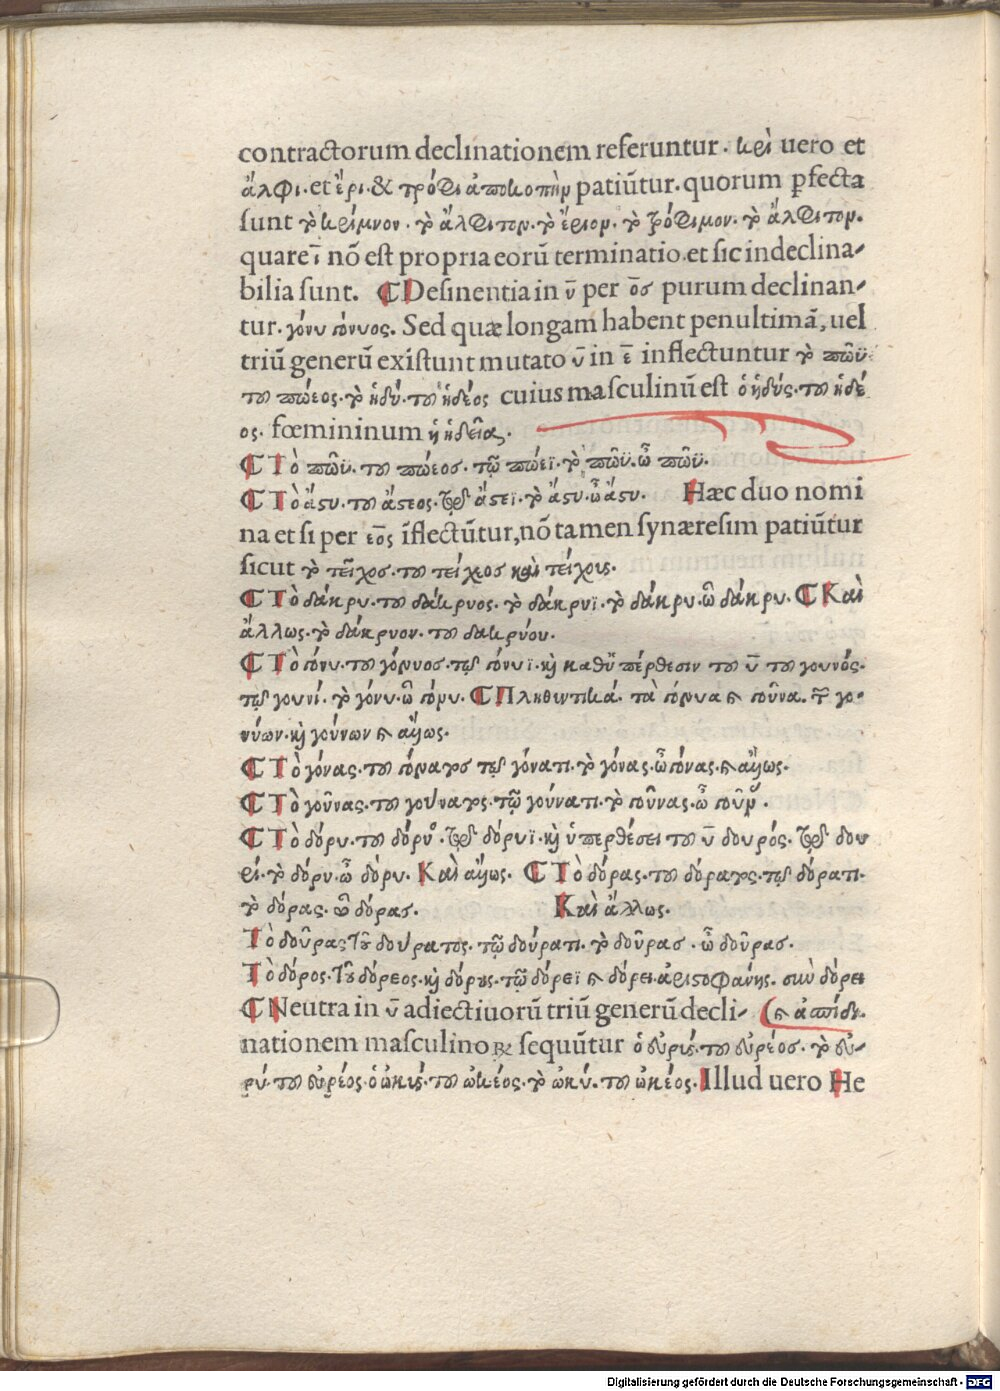 contractorum declinationem referuntur. κρὶ uero et
ἄλφι. et ἔρι. & τρόφι ἀποκοπὴν patiūtur. quorum ꝑfecta
sunt τὸ κρίμνον. τὸ ἄλφιτον. τὸ ἔριον. τὸ τρόφιμον. τὸ ἄλφιτον.
quare ῑ nō est propria eorū terminatio. et sic indeclina-
bilia sunt. ℂ Desinentia in ῡ per ο̄σ purum declinan-
tur. γόνυ γόνυος. Sed quæ longam habent penultimā, uel
triū generū existunt mutato ῡ in ε̄ inflectuntur τὸ πῶϋ
του πώεος. τὸ ἡδύ. του ἡδέος cuius masculinū est ὁ ἡδύς. του ἡδέ
ος. fœmininum ἡ ἡδεῖα.
ℂ Τὸ πῶϋ. του πώεοσ. τῷ πώεϊ. τὸ πῶϋ. ὦ πῶϋ.
ℂ Τὸ ἄϛυ. του ἄϛεος. τῷ ἄϛεϊ. τὸ ἄϛυ. ὦ ἄϛυ. Hæc duo nomi
na et si per εο̄ς īflectūtur, nō tamen synæresim patiūtur
sicut τὸ τεῖχοσ. του τείχεοσ καὶ τείχους.
ℂ Τὸ δάκρυ. του δάκρυος. τὸ δάκρυϊ. τὸ δάκρυ. ὦ δάκρυ. ℂ Καὶ
ἄλλως. τὸ δάκρυον. του δακρύου.
ℂ Τὸ γόνυ. του γόνυος. τῷ γόνυϊ. κὶ καθ' ὑπέρθεσιν του ῡ του γουνός.
τῷ γουνί. τὸ γόνυ. ὦ γόνυ. ℂ Πληθυντικά. τὰ γόνυα κ γοῦνα. τῶν γο-
νύων. κὶ γούνων κ ἄλλως.
ℂ Τὸ γόνας. του γόνατος τῷ γόνατι. τὸ γόνας. ὦ γόνας. κ ἄλλως.
ℂ Τὸ γοῦνας. του γούνατος. τῷ γούνατι. τὸ γοῦνας. ὦ γοῦνας.
ℂ Τὸ δόρυ. του δόρυος. τῷ δόρυϊ. κὶ ὑπερθέσει του ῡ δουρός. τῷ δου
ρί. τὸ δόρυ. ὦ δόρυ. Καὶ ἄλλως. ℂ Τὸ δόρας. του δόρατος. τῷ δόρατι.
τὸ δόρας. ὦ δόρασ. Καὶ ἄλλως.
Τὸ δοῦρας. τοῦ δούρατος. τῷ δούρατι. τὸ δοῦρασ. ὦ δοῦρασ.
Τὸ δόρος. τοῦ δόρεος. κὶ δόρους. τῷ δόρεϊ κ δόρει. ἀριϛοφάνης. σὺν δόρει
ℂ Neutra in ῡ adiectiuorū triū generū decli- (κ ἀσπίδι.
nationem masculinoꝝ sequūtur ὁ εὐρύς. του εὐρέοσ. τὸ εὐ-
ρύ. του εὐρέος. ὁ ὠκύς. του ὠκέος. τὸ ὠκύ. του ὠκέος. Illud uero He
Digitalisierung gefördert durch die Deutsche Forschungsgemeinschaft - DFG